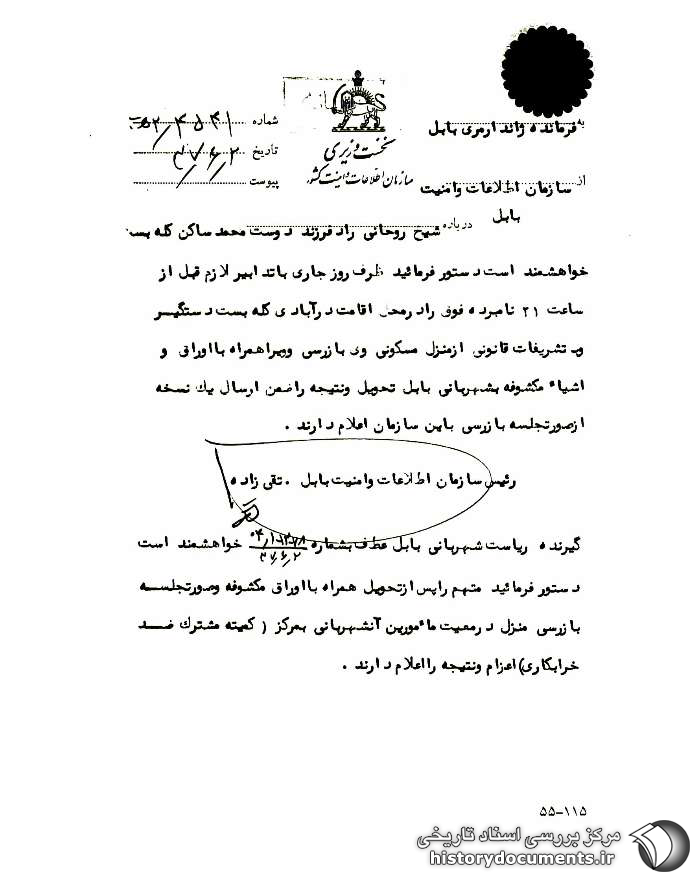 نخست وزیری
سازمان اطلاعات و امنیت کشور
شماره
تاریخ ۳۷/۶/۲
پیوست
به فرمانده ژاندارمری بابل
از سازمان اطلاعات وامنیت
بابل
درباره شیخ روحانی راد فرزند دوست محمد ساکن کله بست
خواهشمند است دستور فرمائید ظرف روز جاری باتدابیر لازم قبل از
ساعت ۲۱ نامبرده فوق رادرمحل اقامت درآبادی کله بست دستگیر
وبـ تشریفات قانونی ازمنزل مسکونی وی بازرسی وویراهمراه بااوراق و
اشیاء مکشوفه بشهربانی بابل تحویل ونتیجه راضمن ارسال یك نسخه
ازصورتجلسه بازرسی باین سازمان اعلام دارند .
رئیس سازمان اطلاعات وامنیت بابل . تقی زاده
گیرنده ریاست شهربانی بابل عطف بشماره ۳۷/۶/۲ خواهشمند است
دستور فرمائید متهم راپس ازتحویل همراه بااوراق مکشوفه وصورتجلسه
بازرسی منزل درمعیت مامورین آنشهربانی بمرکز ( کمیته مشترك ضد
خرابکاری) اعزام ونتیجه رااعلام دارند .
۵۵-۱۱۵
مرکز بررسی اسناد تاریخی
historydocuments.ir